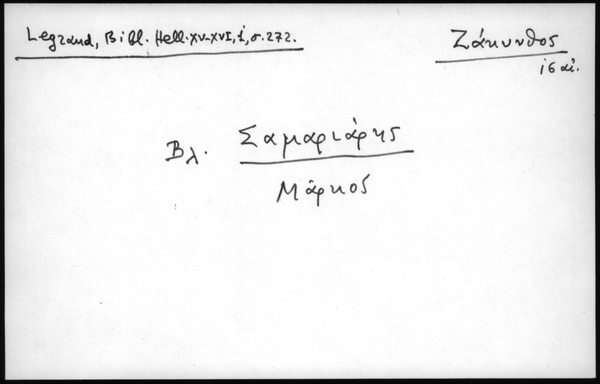 Legrand, Bibl. Hell. XV-XVI, 1, σ. 272.
Ζάκυνθος
16 αἰ.
Βλ. Σαμαριάρης
Μάρκος